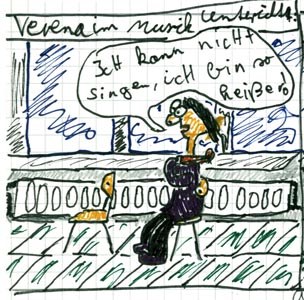 Verena im Musik Unterricht
Ich kann nicht
singen, ich bin so
heißer